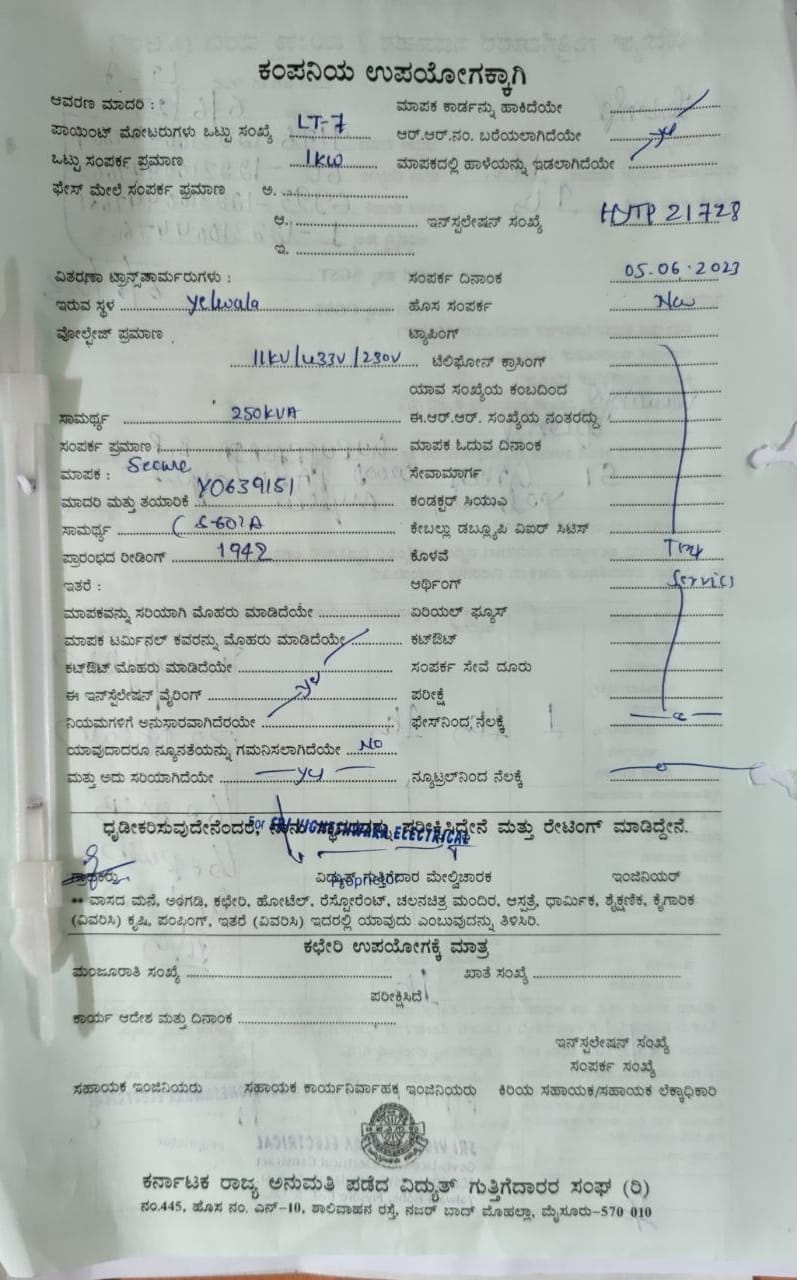 ಕಂಪನಿಯ ಉಪಯೋಗಕ್ಕಾಗಿ
ಆವರಣ ಮಾದರಿ : ಮಾಪಕ ಕಾರ್ಡನ್ನು ಹಾಕಿದೆಯೇ
ಪಾಯಿಂಟ್ ಮೋಟರುಗಳು ಒಟ್ಟು ಸಂಖ್ಯೆ LT-7 ಆರ್.ಆರ್.ನಂ. ಬರೆಯಲಾಗಿದೆಯೇ
ಒಟ್ಟು ಸಂಪರ್ಕ ಪ್ರಮಾಣ 1KW ಮಾಪಕದಲ್ಲಿ ಹಾಳೆಯನ್ನು ಇಡಲಾಗಿದೆಯೇ
ಫೇಸ್ ಮೇಲೆ ಸಂಪರ್ಕ ಪ್ರಮಾಣ ಅ.
ಆ. ಇನ್‌ಸ್ಟಲೇಷನ್ ಸಂಖ್ಯೆ HYTP 21728
ಇ.
ವಿತರಣಾ ಟ್ರಾನ್ಸ್‌ಫಾರ್ಮರುಗಳು : ಸಂಪರ್ಕ ದಿನಾಂಕ 05.06.2023
ಇರುವ ಸ್ಥಳ Yelwala ಹೊಸ ಸಂಪರ್ಕ New
ವೋಲ್ಟೇಜ್ ಪ್ರಮಾಣ ಟ್ಯಾಪಿಂಗ್
11KV/433V/230V ಟೆಲಿಫೋನ್ ಕ್ರಾಸಿಂಗ್
ಯಾವ ಸಂಖ್ಯೆಯ ಕಂಬದಿಂದ
ಸಾಮರ್ಥ್ಯ 250KVA ಈ.ಆರ್.ಆರ್. ಸಂಖ್ಯೆಯ ನಂತರದ್ದು
ಸಂಪರ್ಕ ಪ್ರಮಾಣ ಮಾಪಕ ಓದುವ ದಿನಾಂಕ
ಮಾಪಕ : Secure ಸೇವಾಮಾರ್ಗ
ಮಾದರಿ ಮತ್ತು ತಯಾರಿಕೆ Y0639151 ಕಂಡಕ್ಟರ್ ಸಿಯುಎ
ಸಾಮರ್ಥ್ಯ ಕೇಬಲ್ಲು ಡಬ್ಲ್ಯೂಪಿ ವಿಐರ್ ಸಿಟಿಸ್
ಪ್ರಾರಂಭದ ರೀಡಿಂಗ್ 1942 ಕೊಳವೆ
ಇತರೆ : ಆರ್ಥಿಂಗ್ Service
ಮಾಪಕವನ್ನು ಸರಿಯಾಗಿ ಮೊಹರು ಮಾಡಿದೆಯೇ ಏರಿಯಲ್ ಫ್ಯೂಸ್
ಮಾಪಕ ಟರ್ಮಿನಲ್ ಕವರನ್ನು ಮೊಹರು ಮಾಡಿದೆಯೇ ಕಟ್‌ಔಟ್
ಕಟ್‌ಔಟ್ ಮೊಹರು ಮಾಡಿದೆಯೇ ಸಂಪರ್ಕ ಸೇವೆ ದೂರು
ಈ ಇನ್‌ಸ್ಟಲೇಷನ್ ವೈರಿಂಗ್ ಪರೀಕ್ಷೆ
ನಿಯಮಗಳಿಗೆ ಅನುಸಾರವಾಗಿದೆರಯೇ ಫೇಸ್‌ನಿಂದ ನೆಲಕ್ಕೆ
ಯಾವುದಾದರೂ ನ್ಯೂನತೆಯನ್ನು ಗಮನಿಸಲಾಗಿದೆಯೇ NO
ಮತ್ತು ಅದು ಸರಿಯಾಗಿದೆಯೇ ನ್ಯೂಟ್ರಲ್‌ನಿಂದ ನೆಲಕ್ಕೆ
ಧೃಡೀಕರಿಸುವುದೇನೆಂದರೆ, ಪರೀಕ್ಷಿಸಿದ್ದೇನೆ ಮತ್ತು ರೇಟಿಂಗ್ ಮಾಡಿದ್ದೇನೆ.
For SRI VIGHESHWARA ELECTRICAL
ಗ್ರಾಹಕರು ವಿದ್ಯುತ್ ಗುತ್ತಿಗೆದಾರ ಮೇಲ್ವಿಚಾರಕ ಇಂಜಿನಿಯರ್
Proprietor
** ವಾಸದ ಮನೆ, ಅಂಗಡಿ, ಕಛೇರಿ, ಹೋಟೆಲ್, ರೆಸ್ಟೋರೆಂಟ್, ಚಲನಚಿತ್ರ ಮಂದಿರ, ಆಸ್ಪತ್ರೆ, ಧಾರ್ಮಿಕ, ಶೈಕ್ಷಣಿಕ, ಕೈಗಾರಿಕ
(ವಿವರಿಸಿ) ಕೃಷಿ, ಪಂಪಿಂಗ್, ಇತರೆ (ವಿವರಿಸಿ) ಇದರಲ್ಲಿ ಯಾವುದು ಎಂಬುವುದನ್ನು ತಿಳಿಸಿರಿ.
ಕಛೇರಿ ಉಪಯೋಗಕ್ಕೆ ಮಾತ್ರ
ಮಂಜೂರಾತಿ ಸಂಖ್ಯೆ ಖಾತೆ ಸಂಖ್ಯೆ
ಪರೀಕ್ಷಿಸಿದೆ
ಕಾರ್ಯ ಆದೇಶ ಮತ್ತು ದಿನಾಂಕ
ಇನ್‌ಸ್ಟಲೇಷನ್ ಸಂಖ್ಯೆ
ಸಂಪರ್ಕ ಸಂಖ್ಯೆ
ಸಹಾಯಕ ಇಂಜಿನಿಯರು ಸಹಾಯಕ ಕಾರ್ಯನಿರ್ವಾಹಕ ಇಂಜಿನಿಯರು ಕಿರಿಯ ಸಹಾಯಕ/ಸಹಾಯಕ ಲೆಕ್ಕಾಧಿಕಾರಿ
ಕರ್ನಾಟಕ ರಾಜ್ಯ ಅನುಮತಿ ಪಡೆದ ವಿದ್ಯುತ್ ಗುತ್ತಿಗೆದಾರರ ಸಂಘ (ರಿ)
ನಂ.445, ಹೊಸ ನಂ. ಎನ್-10, ಶಾಲಿವಾಹನ ರಸ್ತೆ, ನಜರ್ ಬಾದ್ ಮೊಹಲ್ಲಾ, ಮೈಸೂರು-570 010